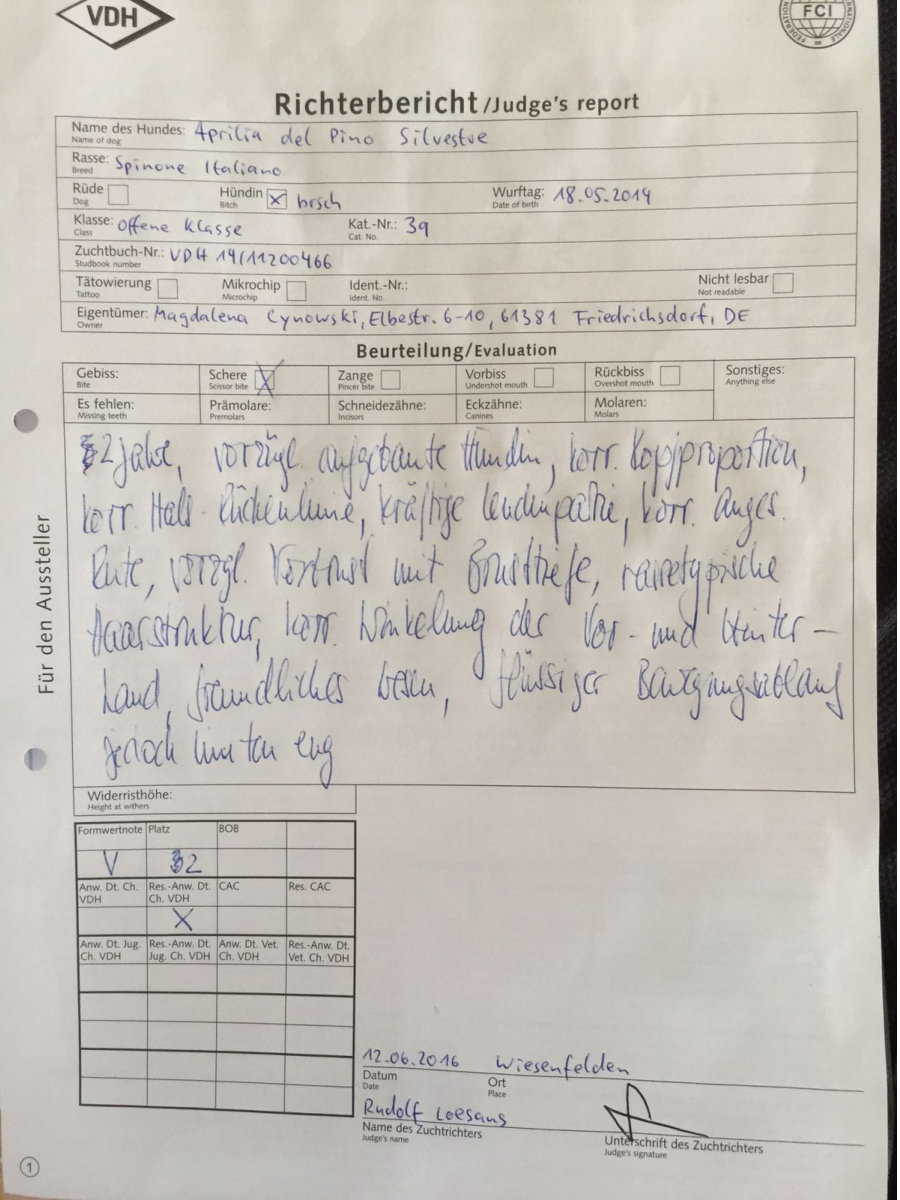 VDH
FCI
Richterbericht /Judge's report
Name des Hundes: Aprilia del Pino Silvestre
Name of dog
Rasse: Spinone Italiano
Breed
Rüde Hündin x brsch Wurftag: 18.05.2014
Dog Bitch Date of birth
Klasse: offene Klasse Kat.-Nr.: 39
Class Cat. No.
Zuchtbuch-Nr.: VDH 14/11200466
Studbook number
Tätowierung Mikrochip Ident.-Nr.: Nicht lesbar
Tattoo Microchip Ident. No. Not readable
Eigentümer: Magdalena Cynowski, Elbestr. 6-10, 61381 Friedrichsdorf, DE
Owner
Beurteilung/Evaluation
Gebiss: Schere X Zange Vorbiss Rückbiss Sonstiges:
Bite Scissor bite Pincer bite Undershot mouth Overshot mouth Anything else
Es fehlen: Prämolare: Schneidezähne: Eckzähne: Molaren:
Missing teeth Premolars Incisors Canines Molars
Für den Aussteller
2 Jahre, vorzügl. aufgebaute Hündin, korr. Kopfproportion,
korr. Hals-Rückenlinie, kräftige Lendenpartie, korr. anges.
Rute, vorzgl. Vorbrust mit Brusttiefe, rassetypische
Haarstruktur, korr. Winkelung der Vor- und Hinter-
hand, freundliches Wesen, flüssiger Bewegungsablauf
jedoch hinten eng
Widerristhöhe:
Height at withers
Formwertnote Platz BOB
V 2
Anw. Dt. Ch. VDH Res.-Anw. Dt. Ch. VDH CAC Res. CAC
X
Anw. Dt. Jug. Ch. VDH Res.-Anw. Dt. Jug. Ch. VDH Anw. Dt. Vet. Ch. VDH Res.-Anw. Dt. Vet. Ch. VDH
12.06.2016 Wiesenfelden
Datum Ort
Date Place
Rudolf Loesans
Name des Zuchtrichters Unterschrift des Zuchtrichters
Judge's name Judge's signature
1